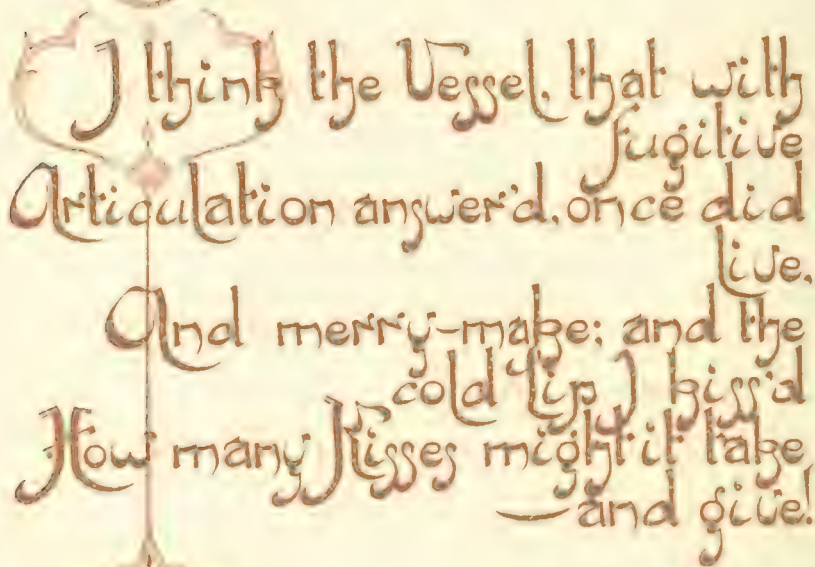 I think the Vessel, that with
fugitive
Articulation answer'd, once did
live,
And merry-make; and the
cold Lip I kiss'd
How many Kisses might it take
—and give!